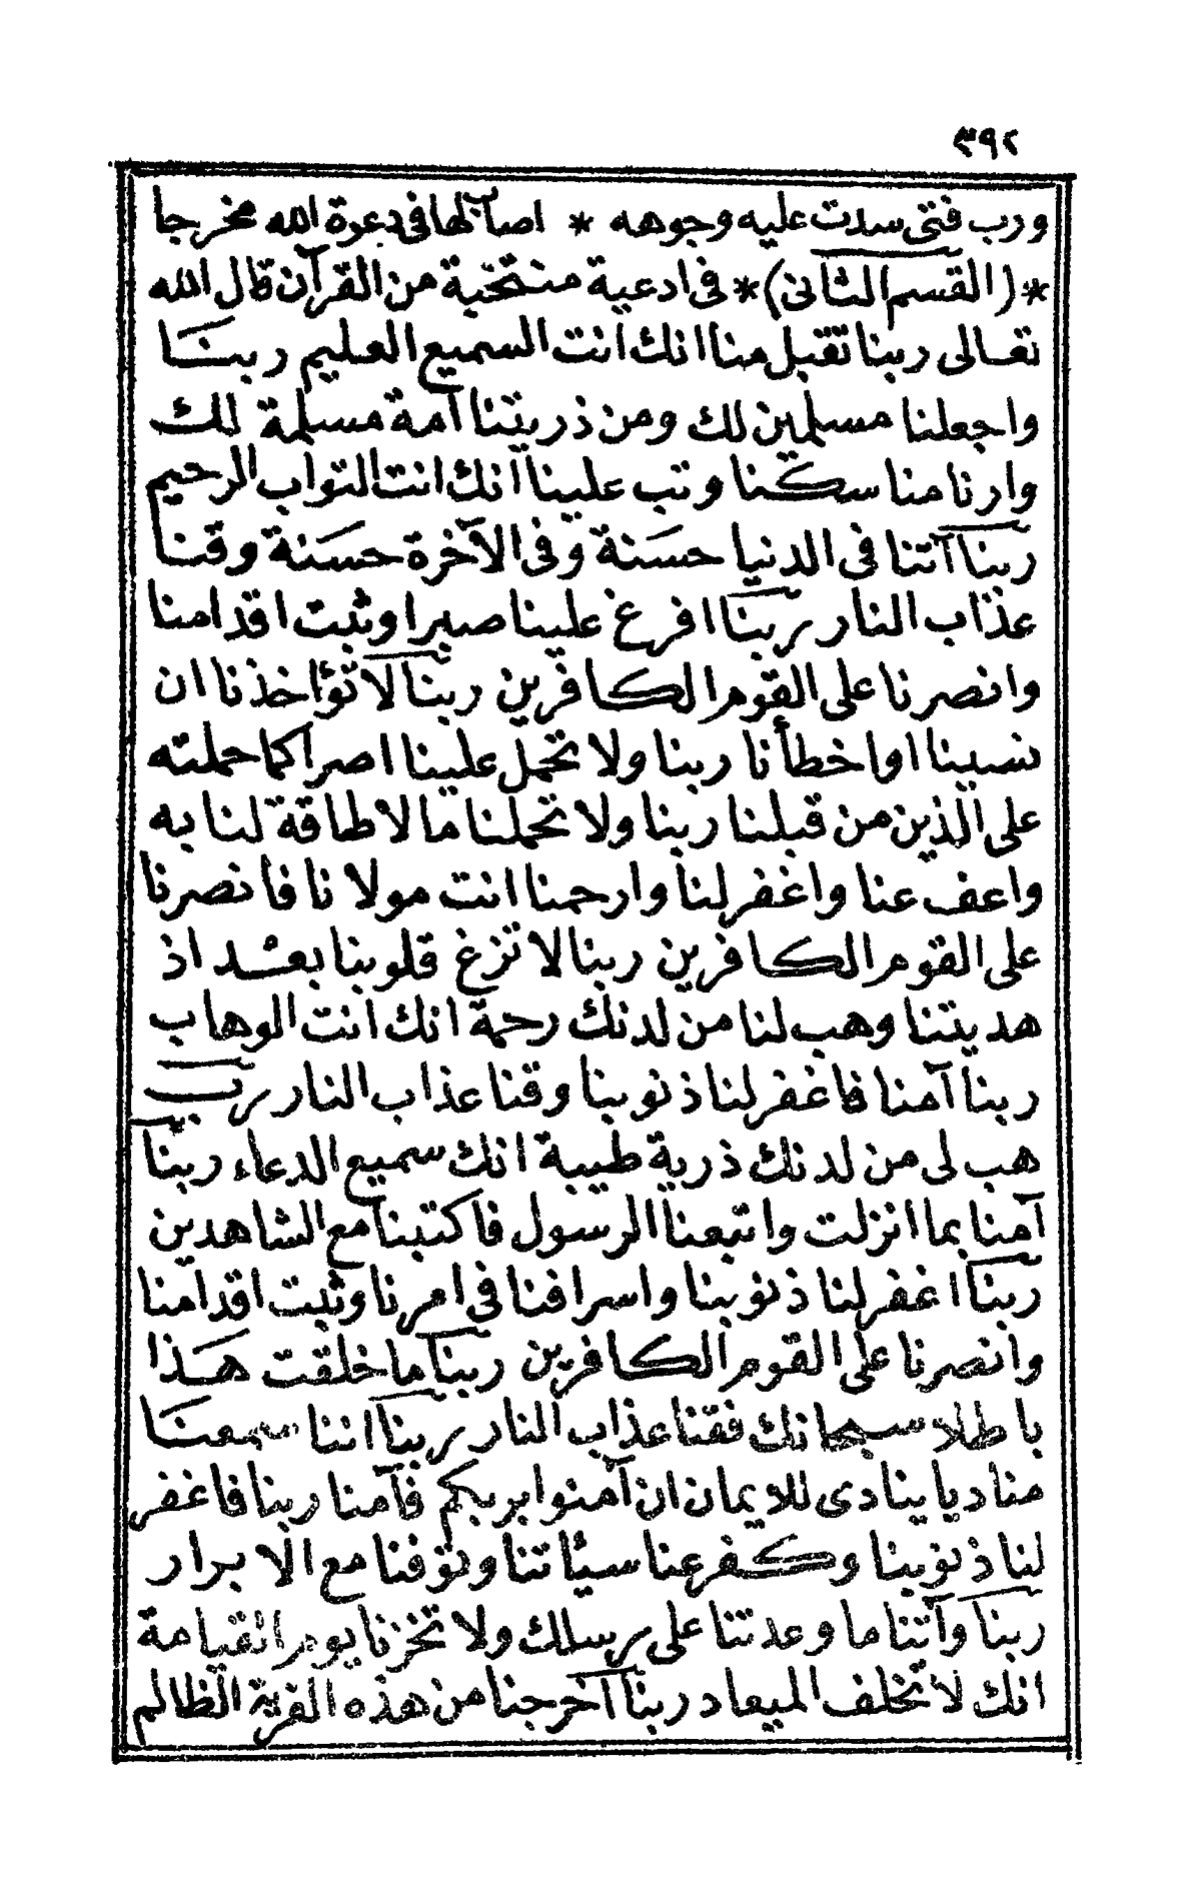 ٣٩٢
ورب فتى سدت عليه وجوهه * اصاب لها فى دعوة الله مخرجا
*(القسم الثانى)* فى ادعية منتخبة من القرآن قال الله
تعالى ربنا تقبل منا انك انت السميع العليم ربنا
واجعلنا مسلمين لك ومن ذريتنا امة مسلمة لك
وارنا مناسكنا وتب علينا انك انت التواب الرحيم
ربنا آتنا فى الدنيا حسنة وفى الآخرة حسنة وقنا
عذاب النار ربنا افرغ علينا صبرا وثبت اقدامنا
وانصرنا على القوم الكافرين ربنا لا تؤاخذنا ان
نسينا او اخطأنا ربنا ولا تحمل علينا اصرا كما حملته
على الذين من قبلنا ربنا ولا تحملنا ما لا طاقة لنا به
واعف عنا واغفر لنا وارحمنا انت مولانا فانصرنا
على القوم الكافرين ربنا لا تزغ قلوبنا بعد اذ
هديتنا وهب لنا من لدنك رحمة انك انت الوهاب
ربنا آمنا فاغفر لنا ذنوبنا وقنا عذاب النار رب
هب لى من لدنك ذرية طيبة انك سميع الدعاء ربنا
آمنا بما انزلت واتبعنا الرسول فاكتبنا مع الشاهدين
ربنا اغفر لنا ذنوبنا واسرافنا فى امرنا وثبت اقدامنا
وانصرنا على القوم الكافرين ربنا ما خلقت هذا
باطلا سبحانك فقنا عذاب النار ربنا اننا سمعنا
مناديا ينادى للايمان ان آمنوا بربكم فآمنا ربنا فاغفر
لنا ذنوبنا وكفر عنا سيئاتنا وتوفنا مع الابرار
ربنا وآتنا ما وعدتنا على رسلك ولا تخزنا يوم القيامة
انك لا تخلف الميعاد ربنا اخرجنا من هذه القرية الظالم